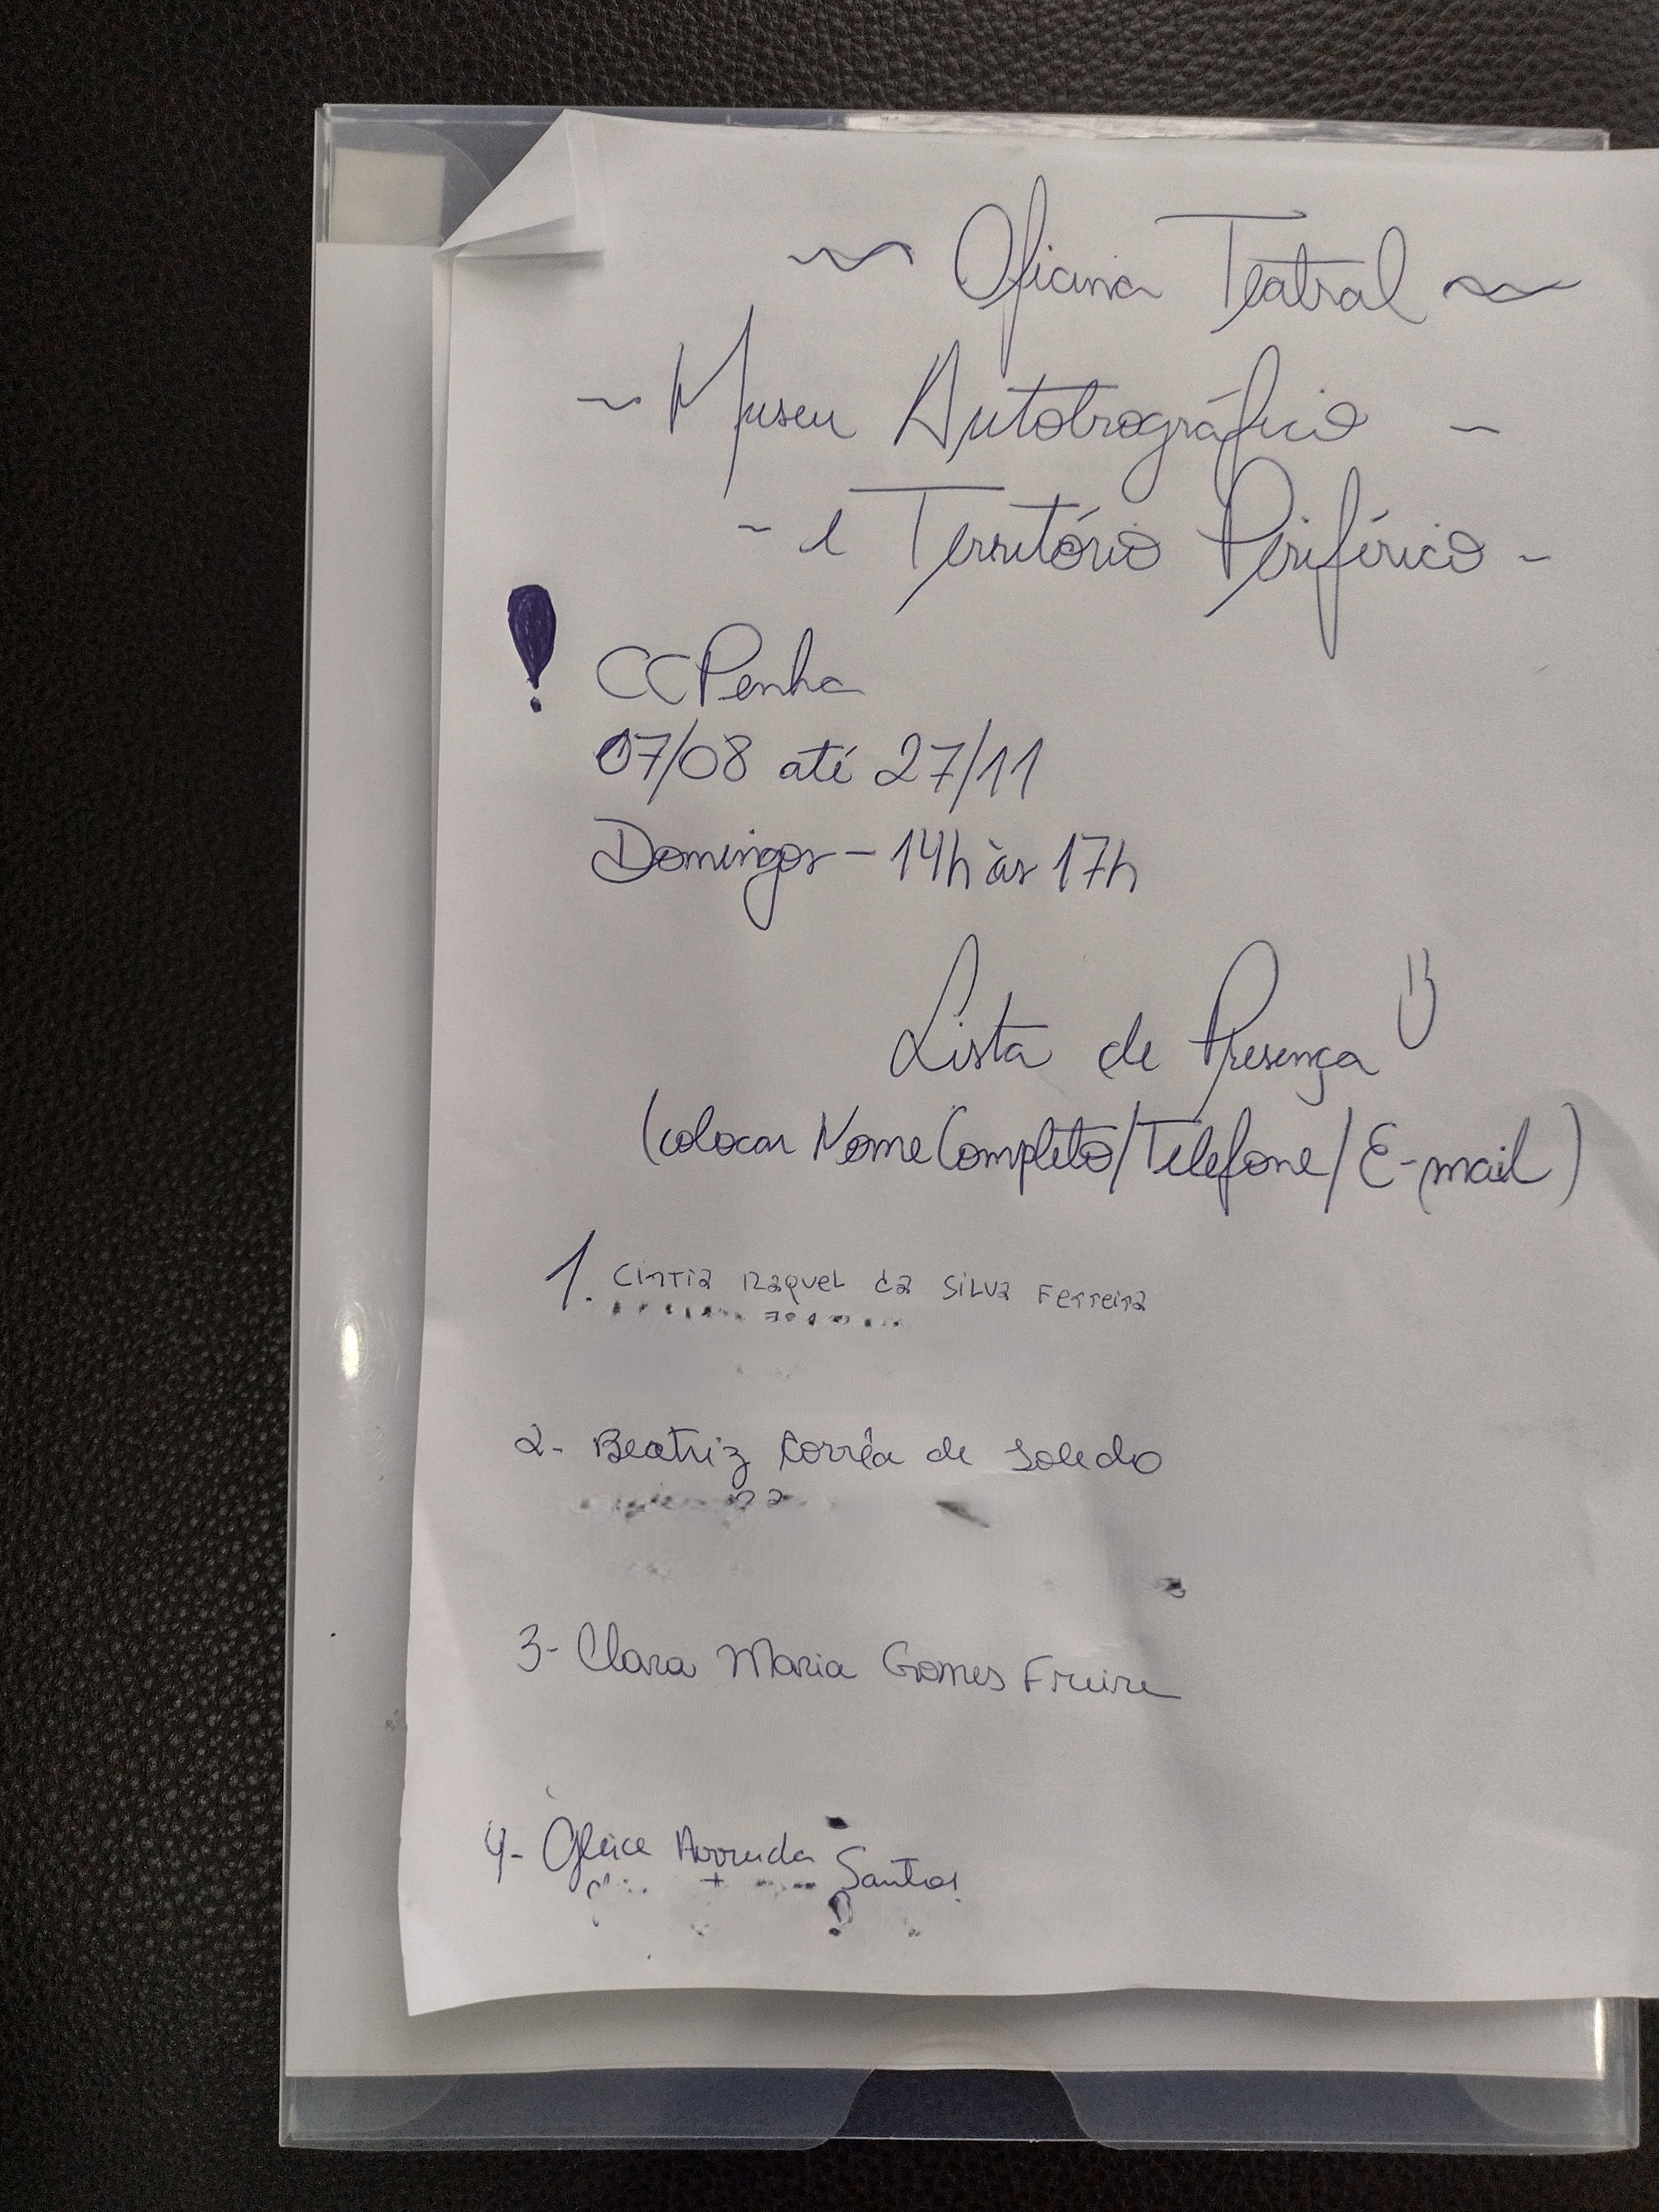 ~ Oficina Teatral ~
~ Museu Autobiográfico ~
~ e Território Periférico ~
! CCPenha
07/08 até 27/11
Domingos - 14h às 17h
Lista de Presença
(colocar Nome Completo/Telefone/E-mail)
1. Cintia Raquel da Silva Ferreira
2- Beatriz Corrêa de Toledo
3- Clara Maria Gomes Freire
4- Gleice Arruda Santos